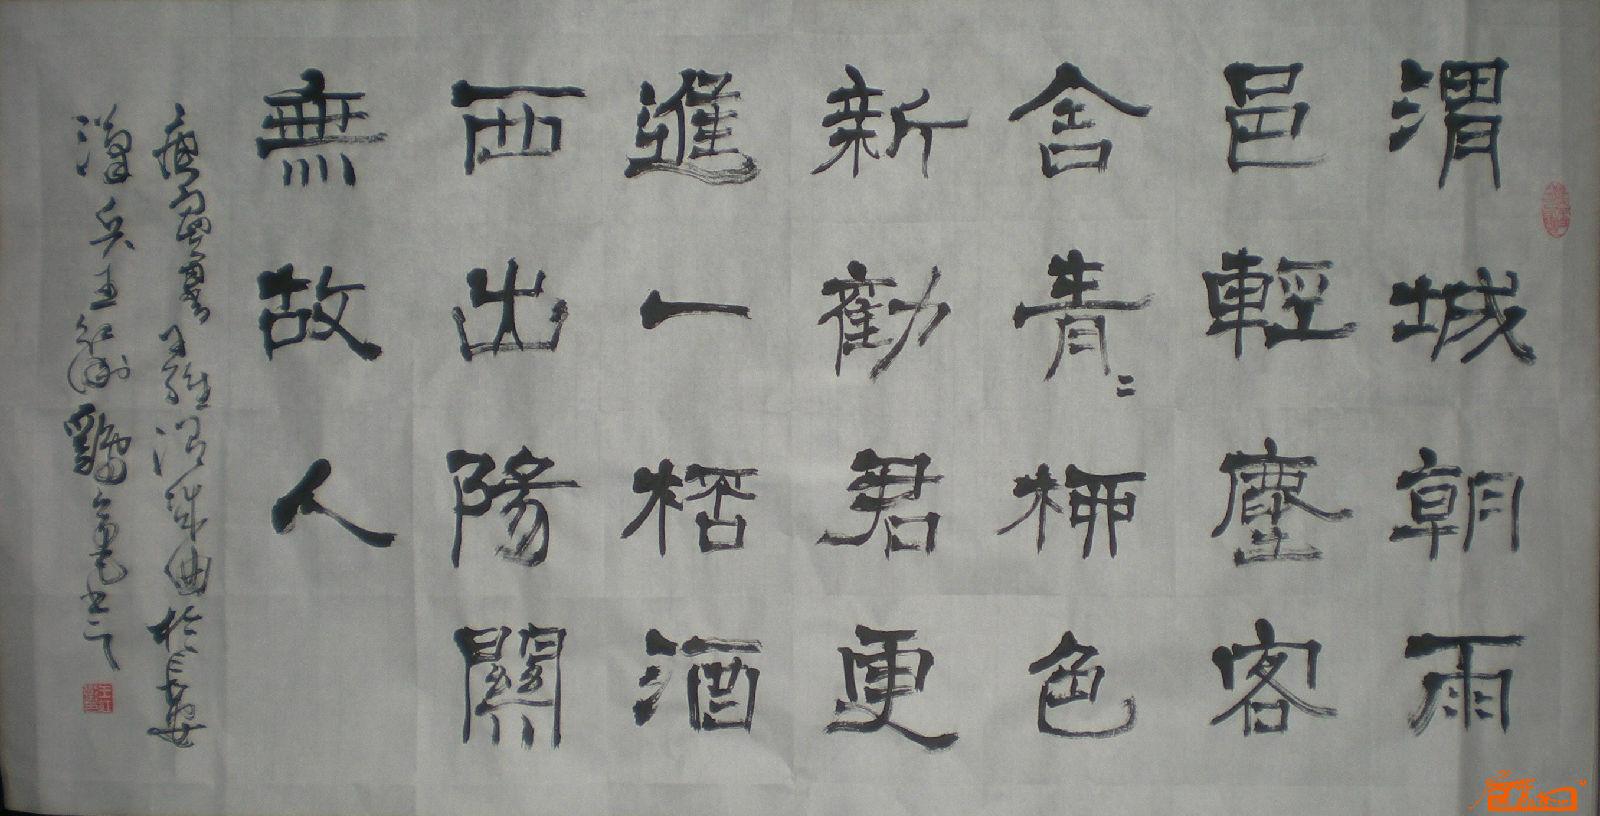 渭城朝雨
邑輕塵客
舍青〻柳色
新勸君更
進一桮酒
西出陽關
無故人
王維渭城曲於長安